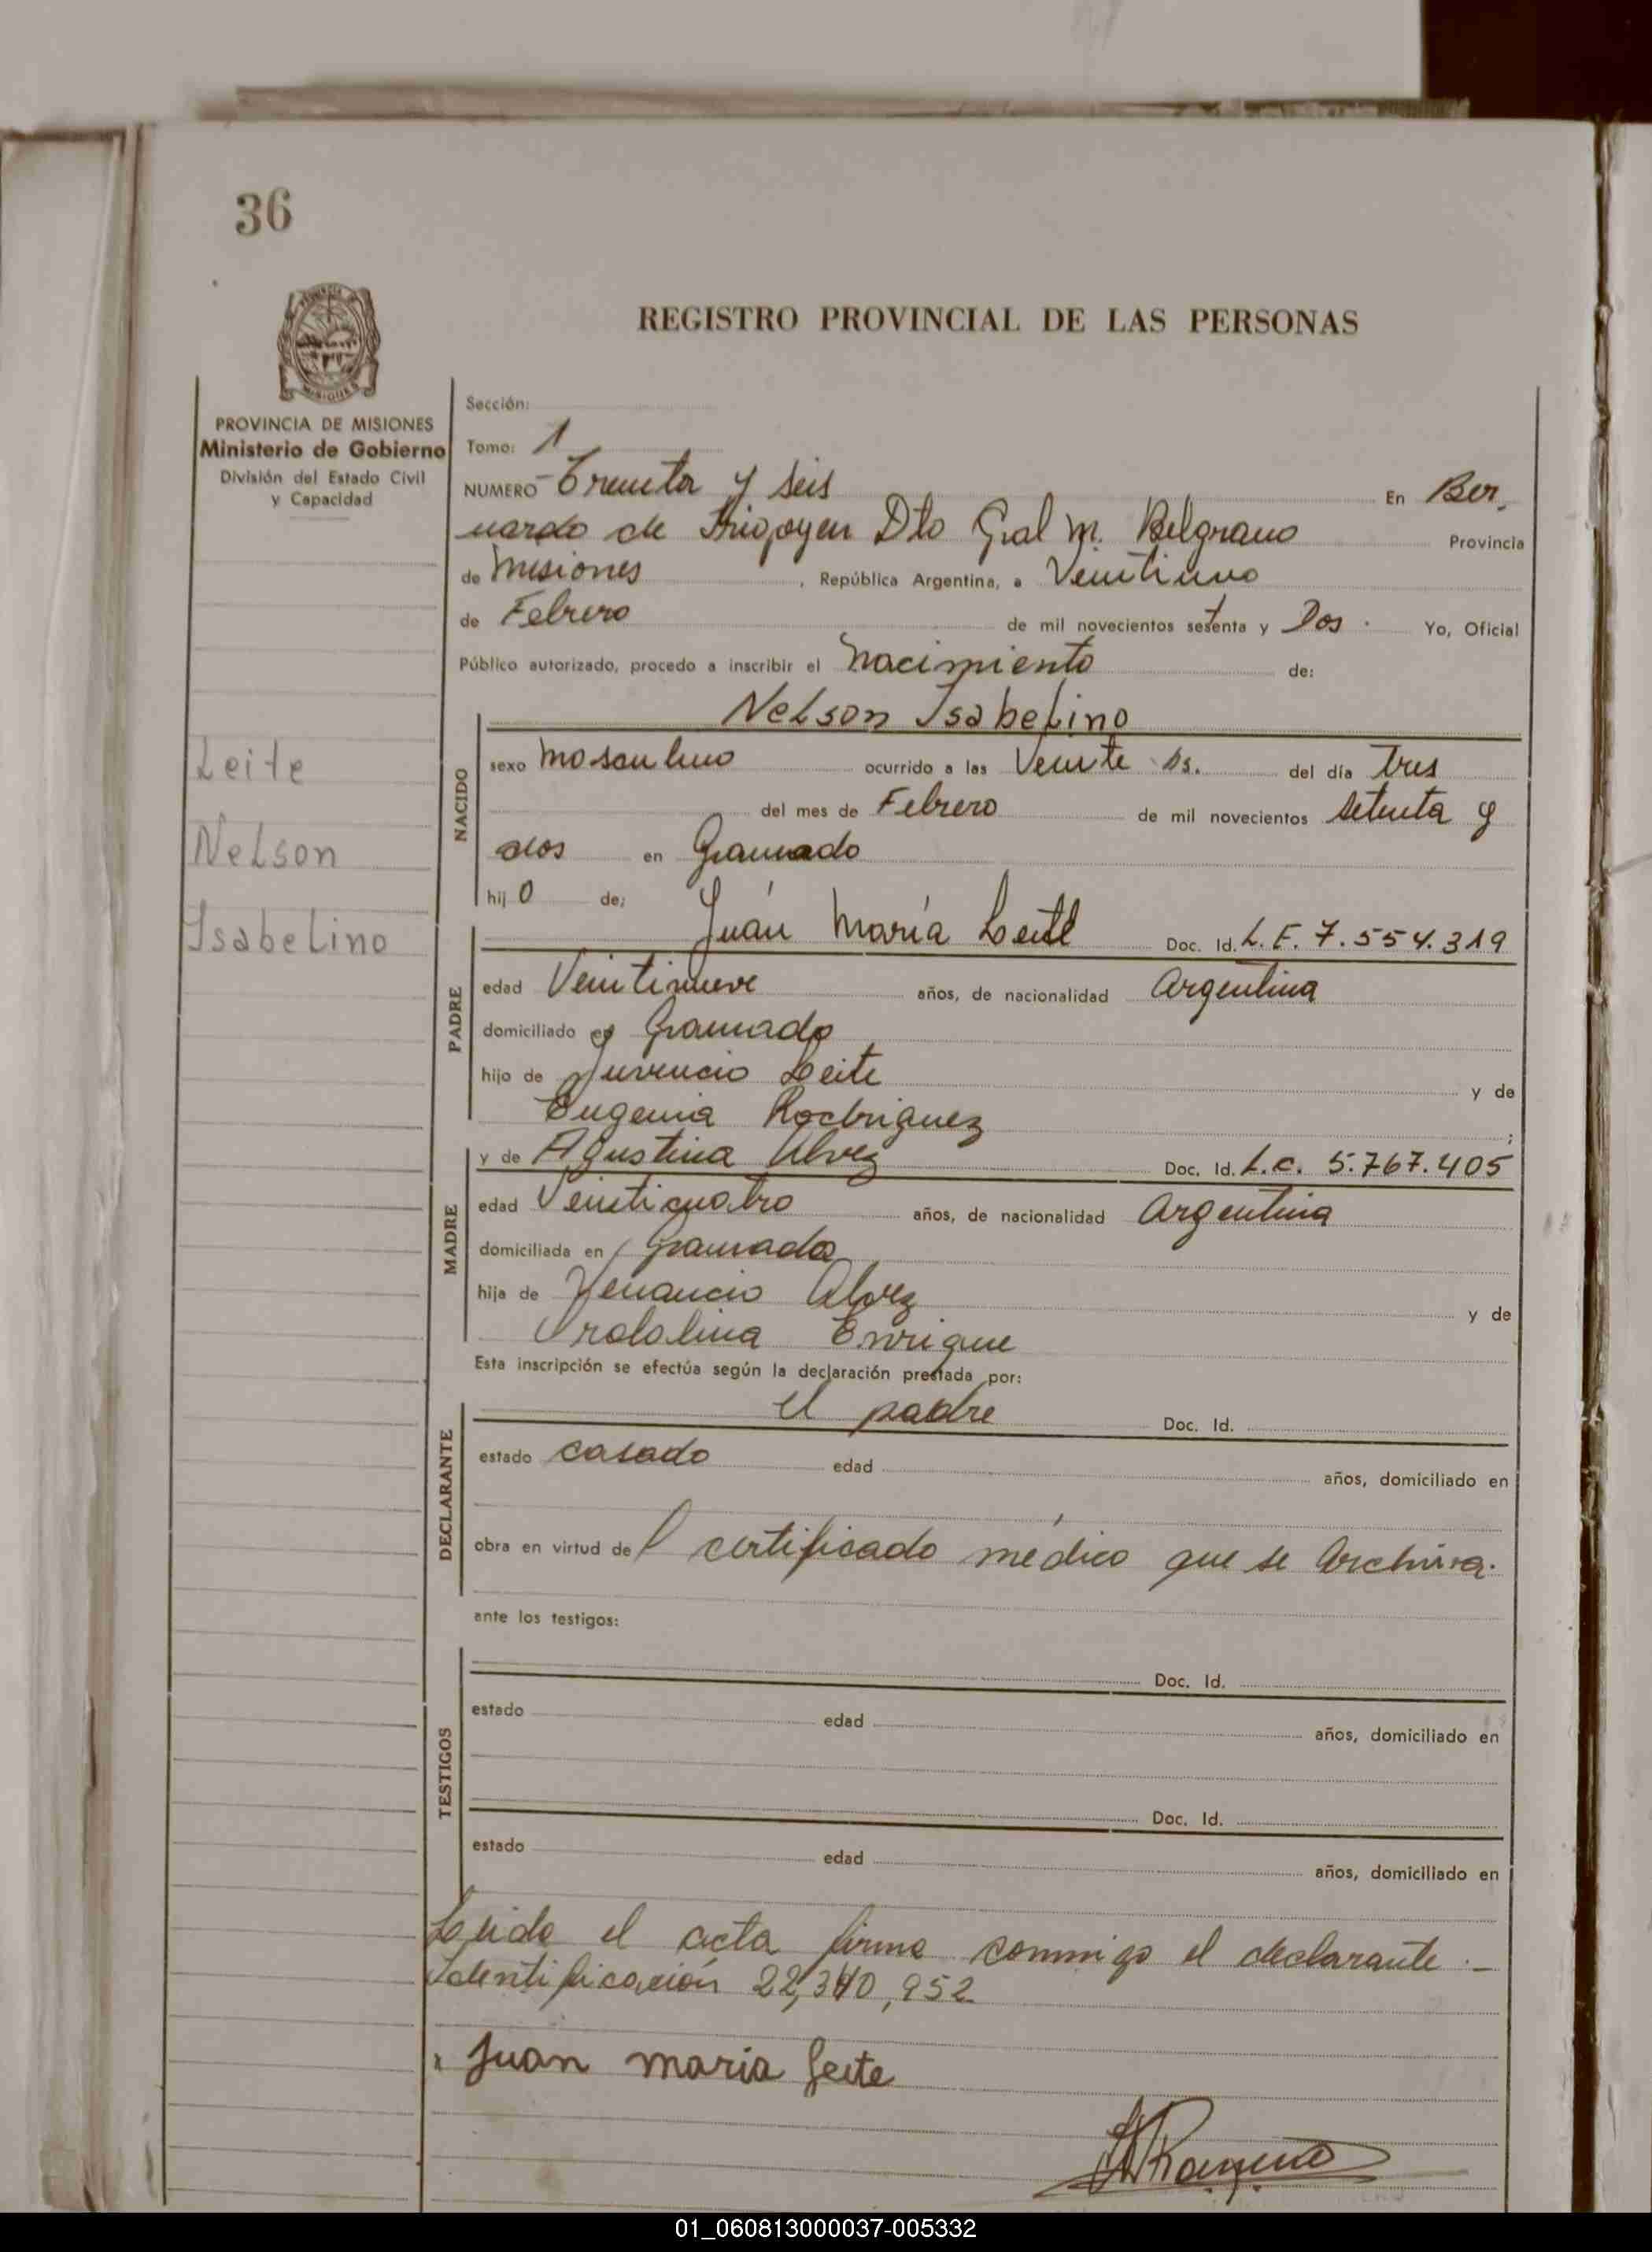 36
REGISTRO PROVINCIAL DE LAS PERSONAS
PROVINCIA DE MISIONES
Ministerio de Gobierno
División del Estado Civil
y Capacidad
Sección:
Tomo: 1
NUMERO Treinta y seis En Ber,
nardo de Irigoyen Dto Gral M. Belgrano Provincia
de Misiones, República Argentina, a Veintiuno
de Febrero de mil novecientos setenta y Dos. Yo, Oficial
Público autorizado, procedo a inscribir el Nacimiento de:
Nelson Isabelino
Leite
Nelson
Isabelino
NACIDO
sexo masculino ocurrido a las Veinte hs. del día tres
del mes de Febrero de mil novecientos setenta y
dos en Gramado
hijo de:
Juan María Leite Doc. Id. L.E. 7.554.319
PADRE
edad Veintinueve años, de nacionalidad Argentina
domiciliado en Gramado
hijo de Juvencio Leite y de
Eugenia Rodriguez;
y de Agustina Alvez Doc. Id. L.C. 5.767.405
MADRE
edad Veinticuatro años, de nacionalidad Argentina
domiciliada en Gramado
hija de Venancio Alvez y de
Enrique
Esta inscripción se efectúa según la declaración prestada por:
el padre Doc. Id.
DECLARANTE
estado casado edad años, domiciliado en
obra en virtud del certificado médico que se archiva.
ante los testigos:
TESTIGOS
Doc. Id.
estado edad años, domiciliado en
Doc. Id.
estado edad años, domiciliado en
Leida el acta firma conmigo el declarante.-
Identificación 22,340,952
x Juan maria Leite
01_060813000037-005332